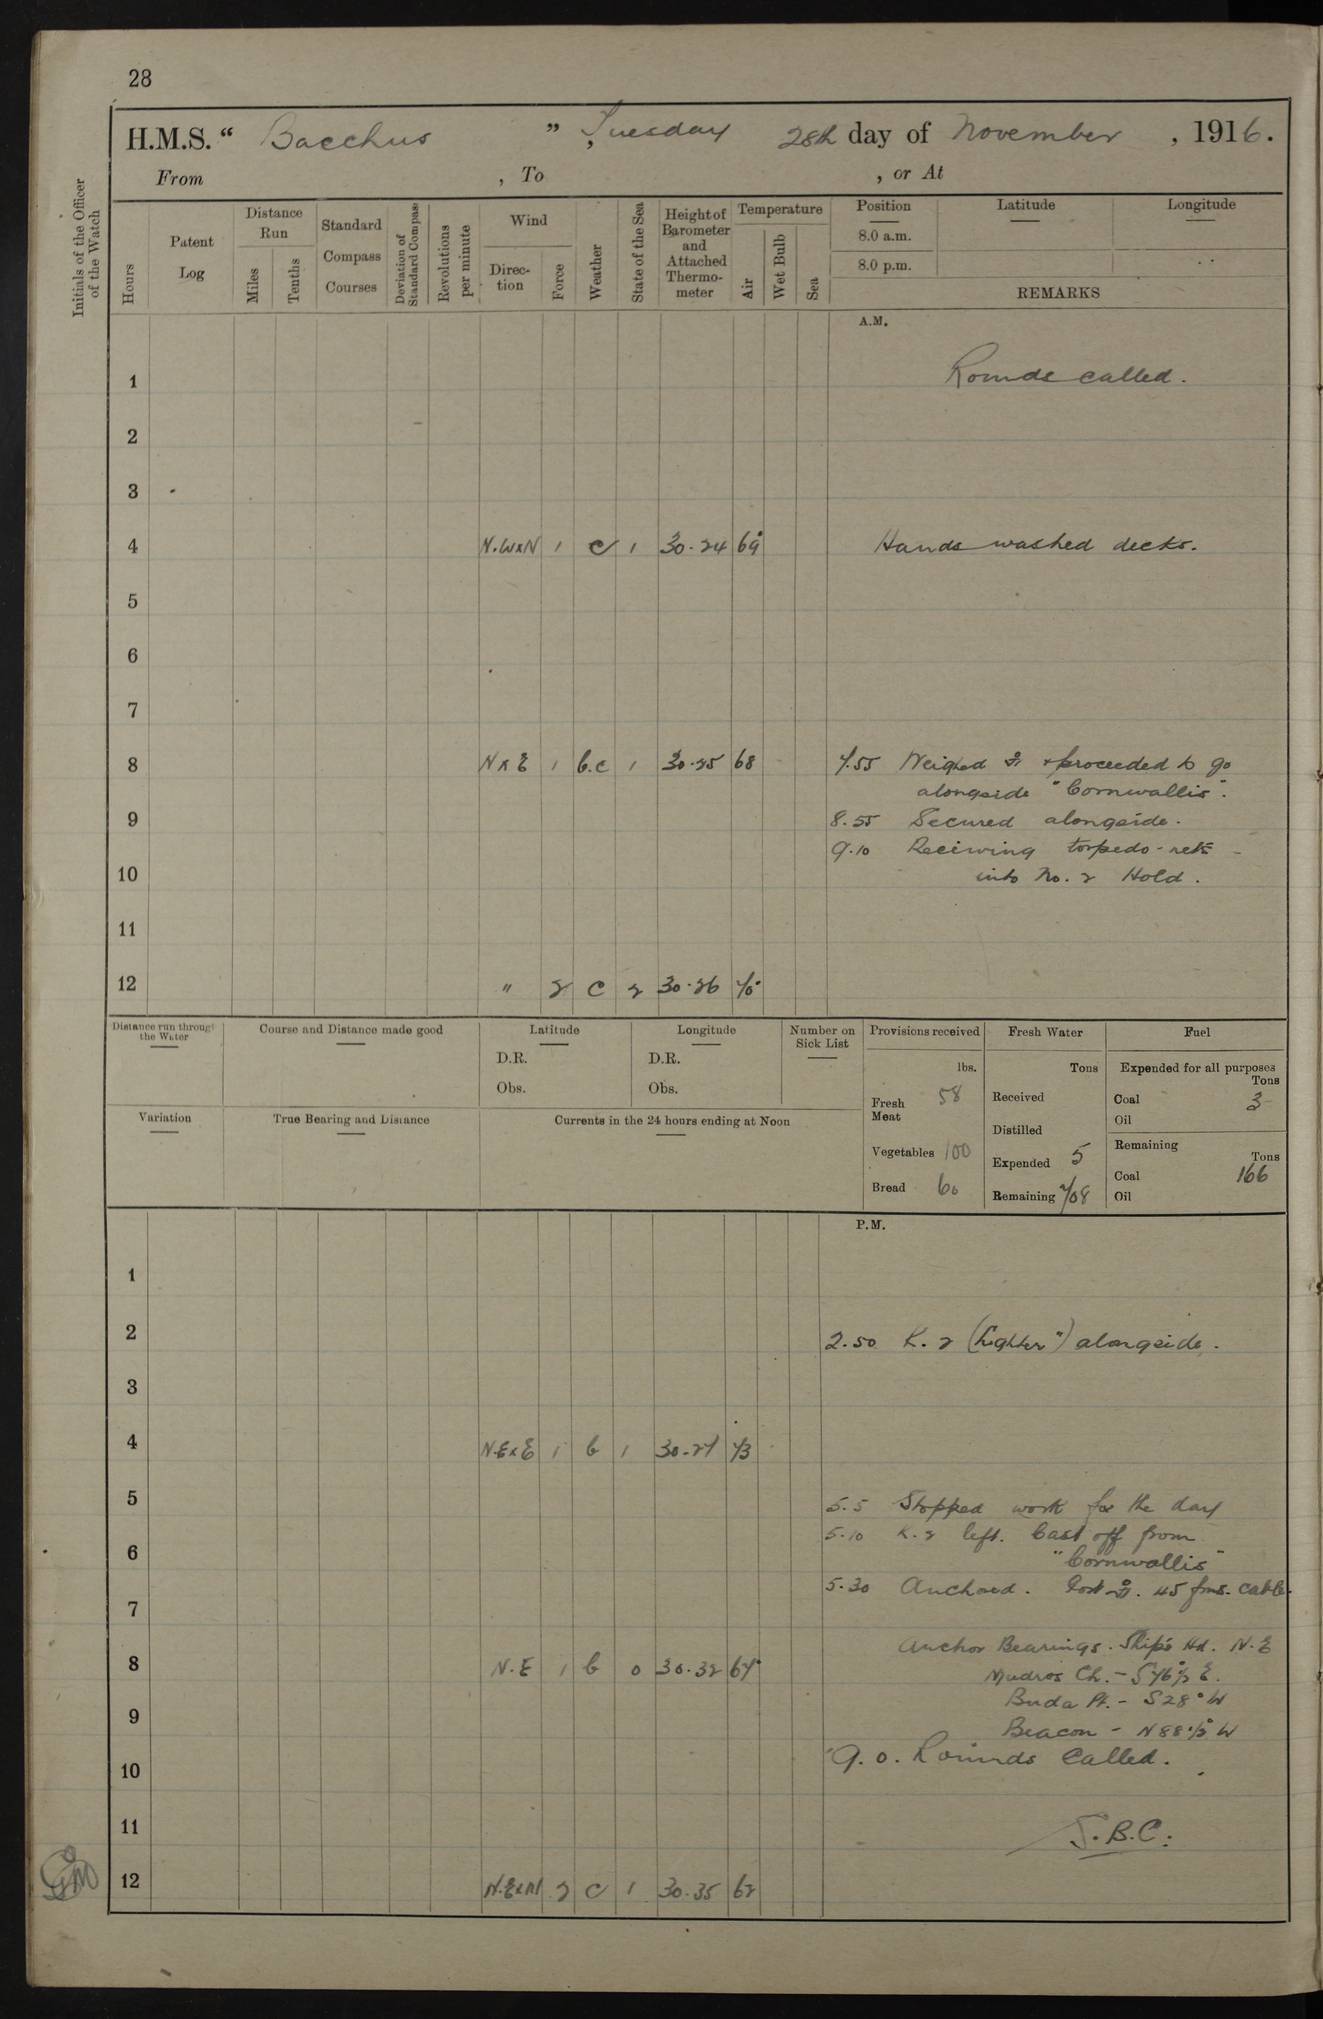 28
H.M.S. “ Bacchus ”, Tuesday 28th day of November, 1916.
From , To , or At
Initials of the Officer of the Watch
Hours
Patent Log
Distance Run
Miles
Tenths
Standard Compass Courses
Deviation of Standard Compass
Revolutions per minute
Wind
Direction
Force
Weather
State of the Sea
Height of Barometer and Attached Thermometer
Temperature
Air
Wet Bulb
Sea
Position
8.0 a.m.
8.0 p.m.
Latitude
Longitude
REMARKS
A.M.
1 Rounds called.
2
3
4 N.WxN 1 c 1 30.24 69 Hands washed decks.
5
6
7
8 NxE 1 b.c 1 30.25 68 7.55 Weighed & proceeded to go
alongside "Cornwallis".
9 8.55 Secured alongside.
9.10 Receiving torpedo-nets
10 into No. 2 Hold.
11
12 " 2 c 2 30.26 70
Distance run through the Water
Course and Distance made good
Latitude
D.R.
Obs.
Longitude
D.R.
Obs.
Number on Sick List
Provisions received
lbs.
Fresh Meat 58
Vegetables 100
Bread 60
Fresh Water
Tons
Received
Distilled
Expended 5
Remaining 708
Fuel
Expended for all purposes
Tons
Coal 3
Oil
Remaining
Tons
Coal 166
Oil
Variation
True Bearing and Distance
Currents in the 24 hours ending at Noon
P.M.
1
2 2.50 K. 2 (Lighter") alongside.
3
4 N.ExE 1 b 1 30.27 73
5 5.5 Stopped work for the day
5.10 K.2 left. Cast off from
6 "Cornwallis"
5.30 Anchored. Port 45 fms. cable.
7
Anchor Bearings. Ship's Hd. N.E
8 N.E 1 b 0 30.32 67 Mudros Ch. - S76½°E.
Buda Pt. - S28°W
9 Beacon - N88½°W
9.0. Rounds Called.
10
11 J.B.C.
12 N.ExN 2 c 1 30.35 62